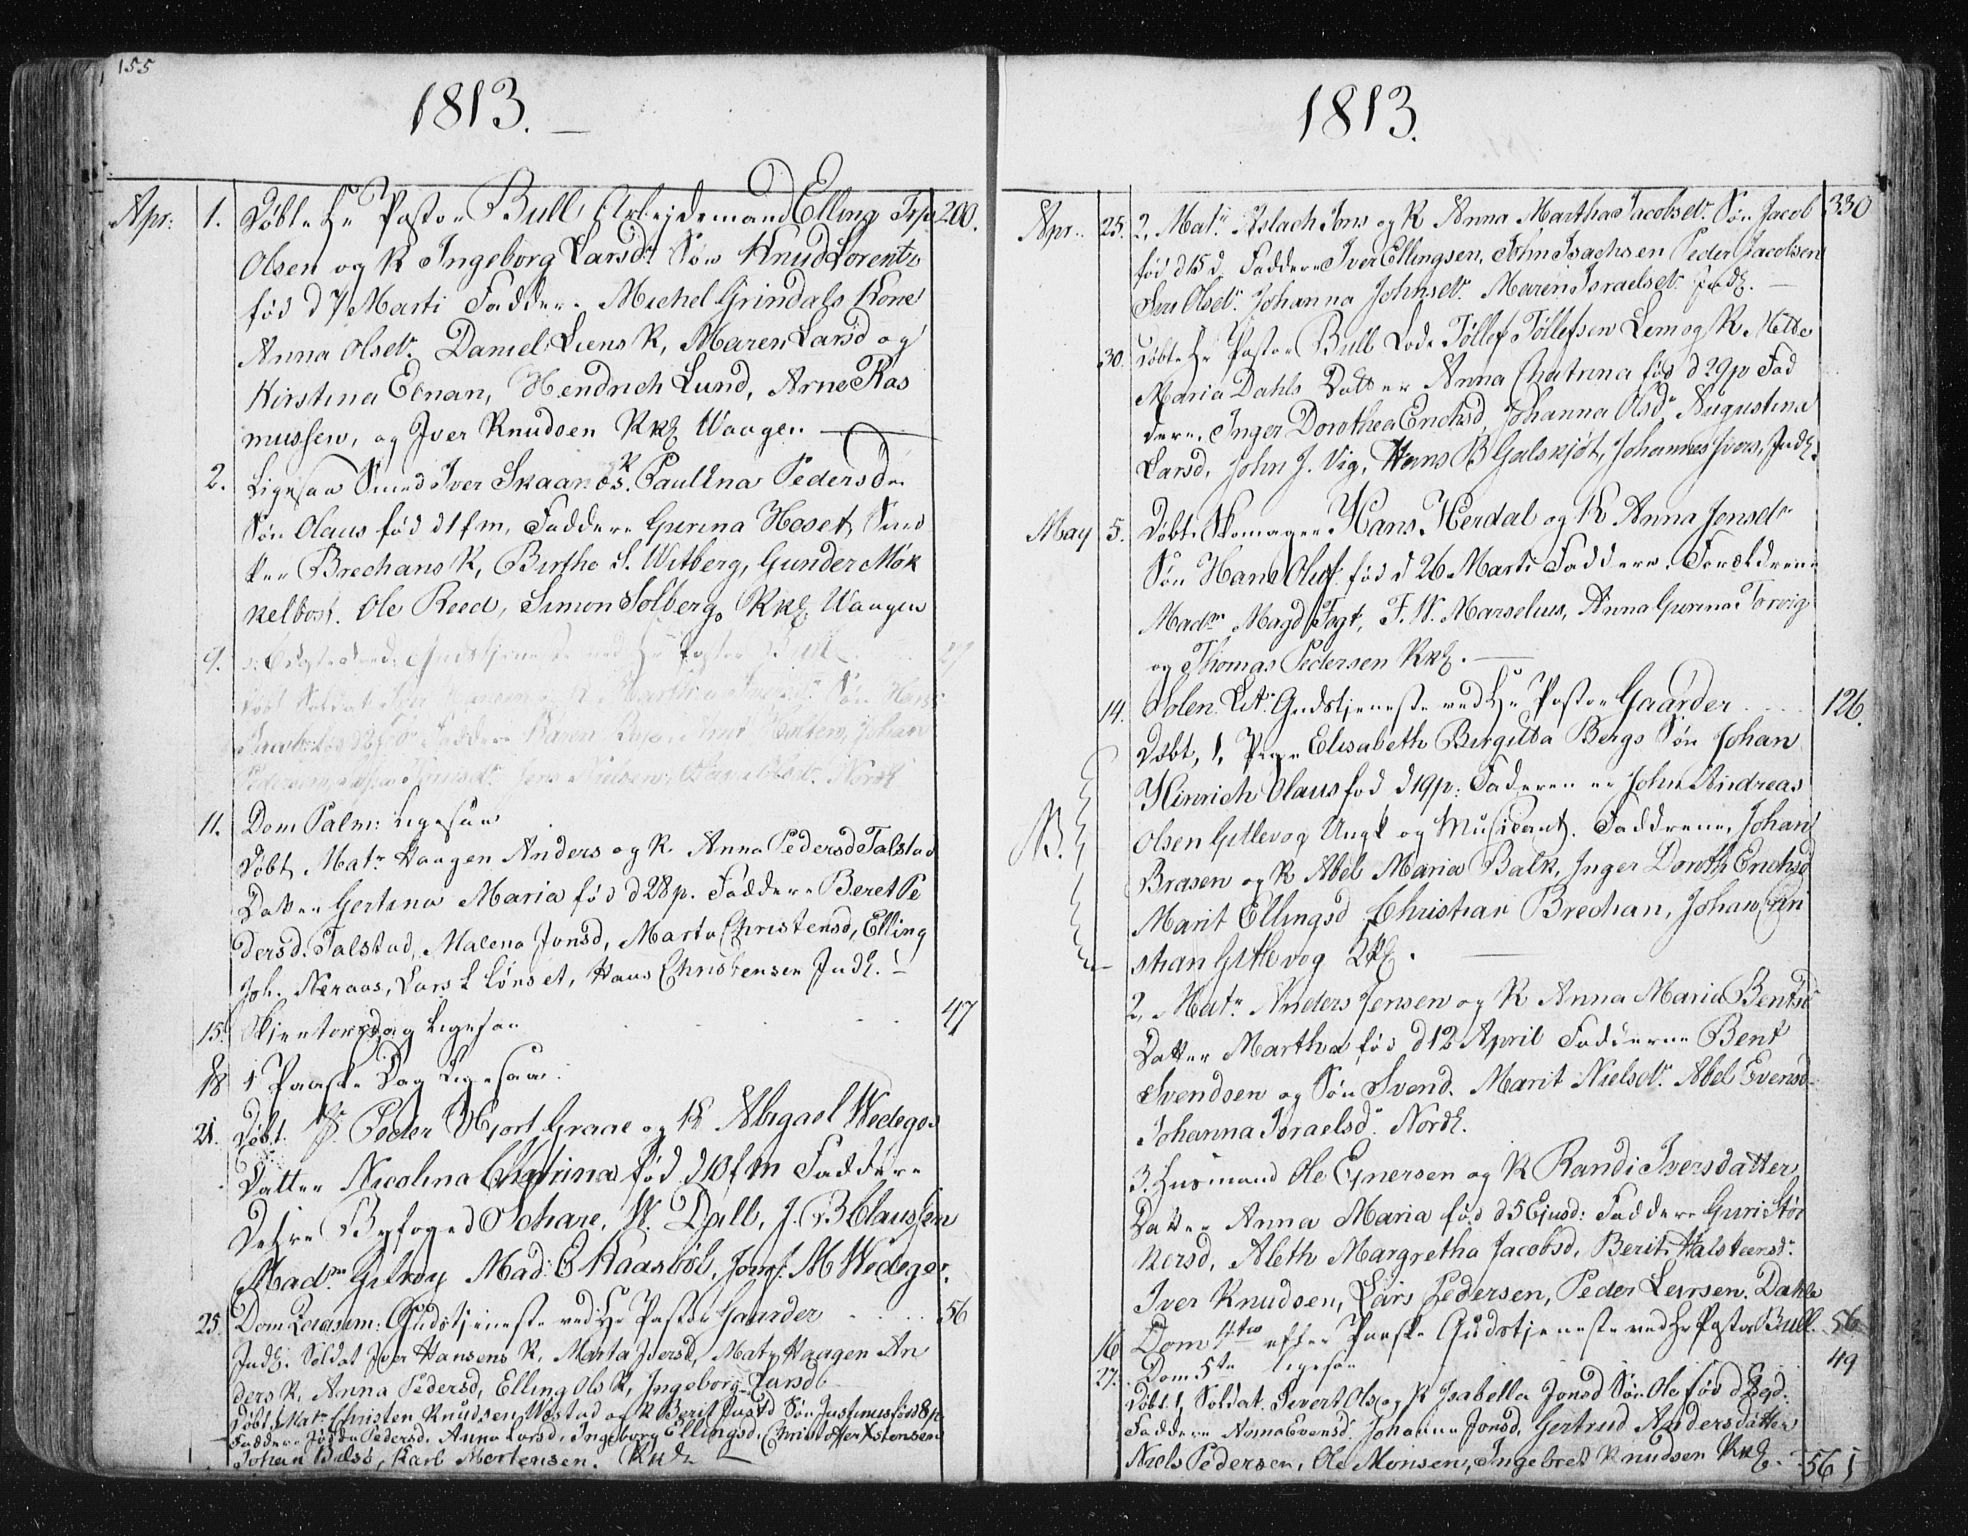 155
1813.
Apr: 1. Døbte Hr Pastor Bull, Arbejdsmand Elling 200.
Olsen og K Ingeborg Larsdr Søn Knud Lorentz
fød d 7 Marti Faddere Michel Grindals Kone
Anna Olsdr. Daniel Liens K, Maren Larsd og
Kirstina Ednan, Hendrich Lund, Arne Ras
mussen, og Iver Knudsen Kkd Waagen
2. Ligesaa Smed Iver Skaanes. K Paulina Pedersdr
Søn Olaus fød d 1 f m, Faddere Gurina Hoset, Sned
ker Brechans K, Birthe S. Witberg, Gunder Møk
kelbost. Ole Reed, Simon Solberg. Kkd Waagen
9.
Døbt Soldat
11. Dom Palm: Ligesaa
Døbt, Matr Haagen Anders og K. Anna Pedersd Talstad
Datter Gertina Maria fød d 28 p. Faddere Beret Pe
dersd. Talstad, Malena Jonsd, Marta Christensd, Elling
Joh. Neraas, Lars L Lønset, Hans Christensen Indd.
15. Skjertorsdag Ligesaa 47
18 1 Paaske Dag Ligesaa.
21. Døbt Hr. Peder Hjort Graae og K Abigael Wedeges
Datter Nicolina Chatrina fød d 10 f m Faddere
Dehrr Byfoged Schare, W. Dall, J. B Claussen
Madm Gelroy Mad: E Kaasbøl, Jomf. M Wedege.
25. Dom Quasim: Gudstjeneste ved Hr Pastor Gaarder 56
Indd. Soldat Iver Hansens K. Marta Iversd, Matr Haagen An
ders K. Anna Pedersd, Elling Ols K, Ingeborg Larsd
Døbt 1, Matr Christen Knudsen Wostad og K Berit Knutd Søn Justinus fød d 8 p
Faddere Pedersd. Anna Larsd, Ingeborg Ellingsd, Christoffer Xstensen
Johan Balsø, Karl Mortensen. Kkd
1813.
Apr: 25. 2, Matr. Aslach Jons og K Anna Martha Jacobsdr. Søn Jacob 330
fød d 15 d Faddere Iver Ellingsen, John Isachsen Peder Jacobsen
Siri Olsdr. Johanna Johnsdr. Maren Israelsdr. Indd.
30. Døbte Hr Pastor Bull Lods Tøllef Tøllefsen Lem og K Methe
Maria Dahls Datter Anna Chatrina fød d 29 p Fad
dere. Inger Dorothea Erichsd, Johanna Olsdr Augustina
Larsd, John J. Vig, Hans B Galskjøt, Johannes Ivers, Indd.
May 5. Døbt Skomager Hans Herdal og K Anna Jensdr
Søn Hans Oluf fød d 26 Marti Faddere. Forældrene
Madm Magd Fogt, F. W. Marselius, Anna Gurina Torvig
og Thomas Pedersen Kkd.
14. Solen. Lit. Gudstjeneste ved Hr Pastor Gaarder 126.
Døbt, 1, Pige Elisabeth Birgitta Bergs Søn Johan
Hinrich Olaus fød d 19 p: Faderen er John Andreas
NB. Olsen Gitlevog Ungk og Musicant. Faddrene, Johan
Brasen og K Abel Maria Balk, Inger Doroth Erichsd
Marit Ellingsd Christian Brechan, Johan Chri
stian Gitlevog Kkd.
2, Matr Anders Jensen og K Anna Maria Bentsd
Datter Martha fød d 12 April Fadderne Bent
Svendsen og Søn Svend. Marit Nielsdr. Abel Evensd
Johanna Israelsd. Nordd.
3. Husmand Ole Ejnersen og K Randi Iversdatter
Datter Anna Maria fød d 5 Ejusd: Faddere Guri Stør
kersd, Aleth Margretha Jacobsd, Berit Halsteensdr.
Iver Knudsen, Lars Pedersen, Peder Larsen. Dahle
16 Dom 4to efter Paaske Gudstjeneste ved Hr Pastor Bull. 56
27. Dom 5te ligesaa 49
Døbt 1, Soldat. Sivert Ols og K Isabella Jonsd Søn Ole fød d 2 gd.
Faddere Anna Evensd. Johanna Jonsd, Gertrud Andersdatter
Niels Pedersen, Ole Monsen, Ingebret Knudsen Kkd. 561